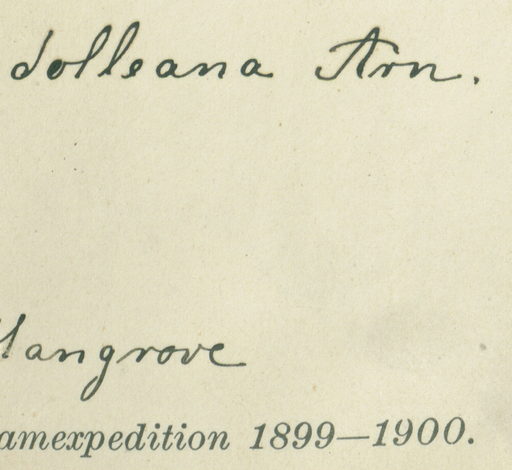 dolleana Arn.
Mangrove
amexpedition 1899—1900.